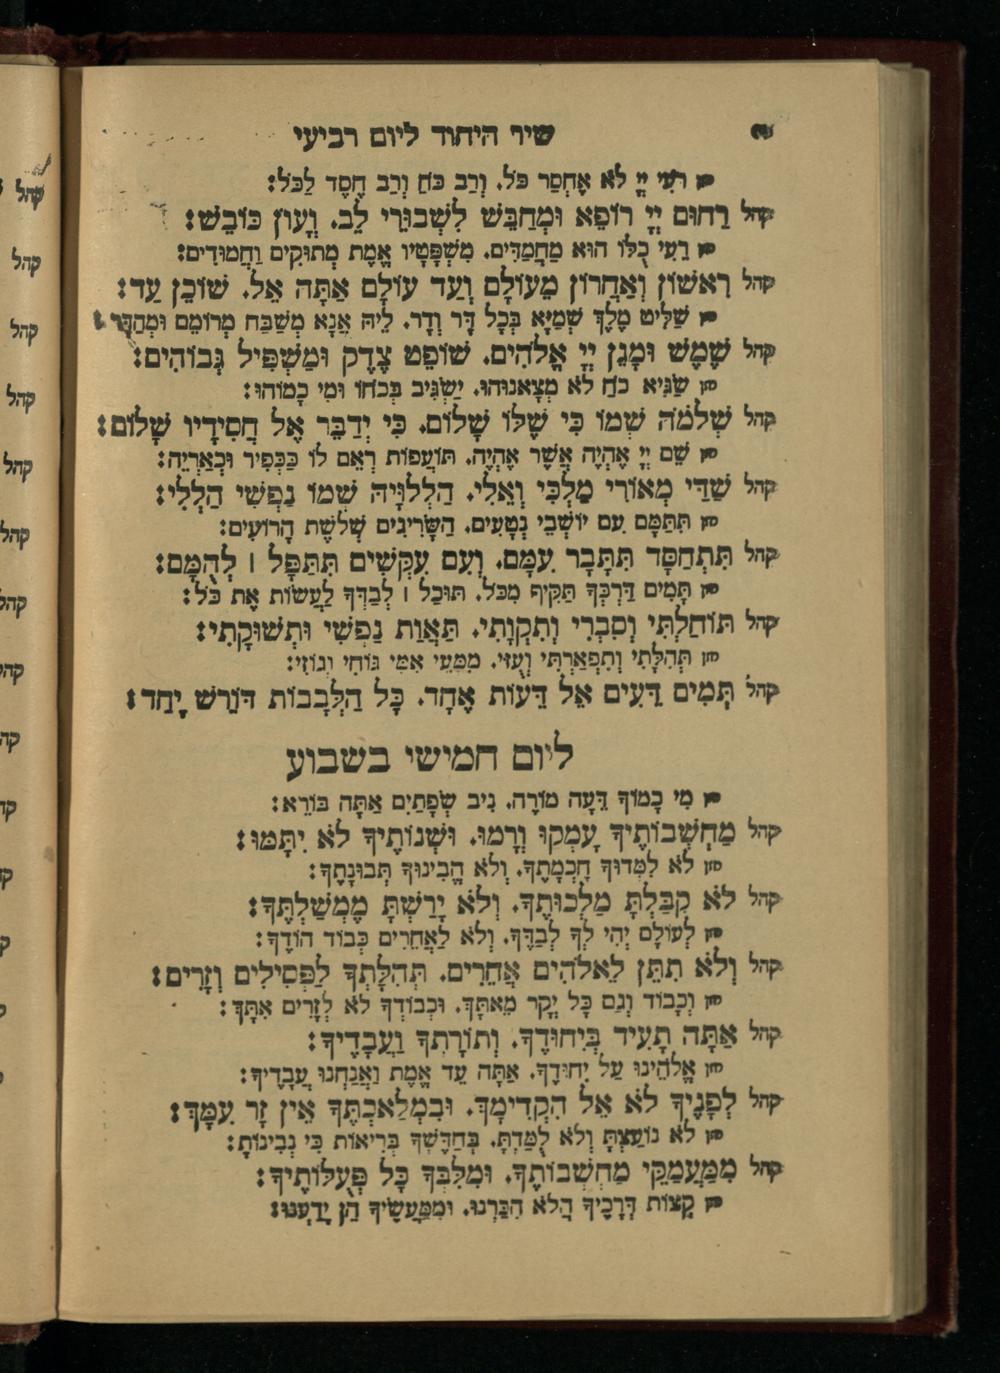 שיר היחוד ליום רביעי
חזן רֹעִי יְיָ לֹא אֶחְסַר כֹּל. וְרַב כֹּחַ וְרַב חֶסֶד לַכֹּל:
קהל רַחוּם יְיָ רוֹפֵא וּמְחַבֵּשׁ לִשְׁבוּרֵי לֵב. וְעָוֹן כּוֹבֵשׁ:
חזן רֵעִי כֻלּוֹ הוּא מַחֲמַדִּים. מִשְׁפָּטָיו אֱמֶת מְתוּקִים וַחֲמוּדִים:
קהל רִאשׁוֹן וְאַחֲרוֹן מֵעוֹלָם וְעַד עוֹלָם אַתָּה אֵל. שׁוֹכֵן עַד:
חזן שַׁלִּיט מֶלֶךְ שְׁמַיָּא בְּכָל דָּר וְדָר. לֵיהּ אֲנָא מְשַׁבַּח מְרוֹמֵם וּמְהַדָּר
קהל שֶׁמֶשׁ וּמָגֵן יְיָ אֱלֹהִים. שׁוֹפֵט צֶדֶק וּמַשְׁפִּיל גְּבוֹהִים:
חזן שַׂגִּיא כֹחַ לֹא מְצָאנוּהוּ. יַשְׂגִּיב בְּכֹחוֹ וּמִי כָמוֹהוּ:
קהל שְׁלֹמֹה שְׁמוֹ כִּי שֶׁלּוֹ שָׁלוֹם. כִּי יְדַבֵּר אֶל חֲסִידָיו שָׁלוֹם:
חזן שֵׁם יְיָ אֶהְיֶה אֲשֶׁר אֶהְיֶה. תּוֹעֲפוֹת רְאֵם לוֹ כַּכְּפִיר וּכְאַרְיֵה:
קהל שַׁדַּי מְאוֹרִי מַלְכִּי וְאֵלִי. הַלְלוּיָהּ שְׁמוֹ נַפְשִׁי הַלְלִי:
חזן תִּתַּמָּם עִם יוֹשְׁבֵי נְטָעִים. הַשָּׂרִיגִים שְׁלֹשֶׁת הָרוֹעִים:
קהל תִּתְחַסָּד תִּתָּבָר עִמָּם. וְעִם עִקְּשִׁים תִּתַּפָּל ׀ לְהֻמָּם:
חזן תָּמִים דַּרְכְּךָ תַּקִּיף מִכֹּל. תּוּכַל ׀ לְבַדְּךָ לַעֲשׂוֹת אֶת כֹּל:
קהל תּוֹחַלְתִּי וְסִבְרִי וְתִקְוָתִי. תַּאֲוַת נַפְשִׁי וּתְשׁוּקָתִי:
חזן תְּהִלָּתִי וְתִפְאַרְתִּי וְעֻזִּי. מִמְּעֵי אִמִּי גּוֹחִי וְגוֹזִי:
קהל תְּמִים דֵּעִים אֵל דֵּעוֹת אֶחָד. כָּל הַלְּבָבוֹת דּוֹרֵשׁ יָחַד:
ליום חמישי בשבוע
חזן מִי כָמוֹךָ דֵּעָה מוֹרֶה. נִיב שְׂפָתַיִם אַתָּה בּוֹרֵא:
קהל מַחְשְׁבוֹתֶיךָ עָמְקוּ וְרָמוּ. וּשְׁנוֹתֶיךָ לֹא יִתָּמּוּ:
חזן לֹא לִמְּדוּךָ חָכְמָתֶךָ. וְלֹא הֱבִינוּךָ תְּבוּנָתֶךָ:
קהל לֹא קִבַּלְתָּ מַלְכוּתֶךָ. וְלֹא יָרַשְׁתָּ מֶמְשַׁלְתֶּךָ:
חזן לְעוֹלָם יְהִי לְךָ לְבַדֶּךָ. וְלֹא לַאֲחֵרִים כְּבוֹד הוֹדֶךָ:
קהל וְלֹא תִתֵּן לֵאלֹהִים אֲחֵרִים. תְּהִלָּתְךָ לַפְּסִילִים וְזָרִים:
חזן וְכָבוֹד וְגַם כָּל יְקָר מֵאִתָּךְ. וּכְבוֹדְךָ לֹא לְזָרִים אִתָּךְ:
קהל אַתָּה תָעִיד בְּיִחוּדֶךָ. וְתוֹרָתְךָ וַעֲבָדֶיךָ:
חזן אֱלֹהֵינוּ עַל יִחוּדֶךָ. אַתָּה עֵד אֱמֶת וַאֲנַחְנוּ עֲבָדֶיךָ:
קהל לְפָנֶיךָ לֹא אֵל הִקְדִּימֶךָ. וּבִמְלַאכְתֶּךָ אֵין זָר עִמָּךְ:
חזן לֹא נוֹעַצְתָּ וְלֹא לֻמַּדְתָּ. בְּחַדֶּשְׁךָ בְּרִיאוֹת כִּי נְבוּנוֹתָ:
קהל מִמַּעֲמַקֵּי מַחְשְׁבוֹתֶךָ. וּמִלִּבְּךָ כָּל פְּעֻלּוֹתֶיךָ:
חזן קְצוֹת דְּרָכֶיךָ הֲלֹא הִכַּרְנוּ. וּמִמַּעֲשֶׂיךָ הֵן יָדָעְנוּ:
קהל
קהל
קהל
קהל
קהל
קהל
קהל